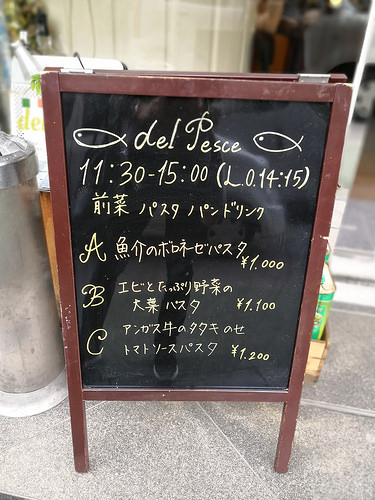 del Pesce
11:30-15:00 (L.O.14:15)
前菜 パスタ パン ドリンク
A 魚介のボロネーゼパスタ
¥1.000
B エビとたっぷり野菜の
大葉パスタ ¥1.100
C アンガス牛のタタキのせ
トマトソースパスタ ¥1.200